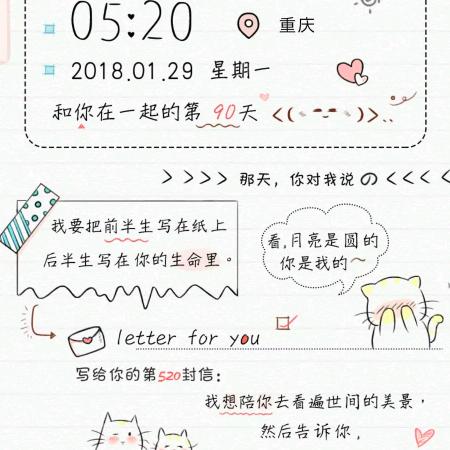 05:20 重庆
2018.01.29 星期一
和你在一起的第 90天 <( )>..
>>>> 那天，你对我说の <<<<
我要把前半生写在纸上
后半生写在你的生命里。
看,月亮是圆的
你是我的~
letter for you
写给你的第520封信:
我想陪你去看遍世间的美景，
然后告诉你，